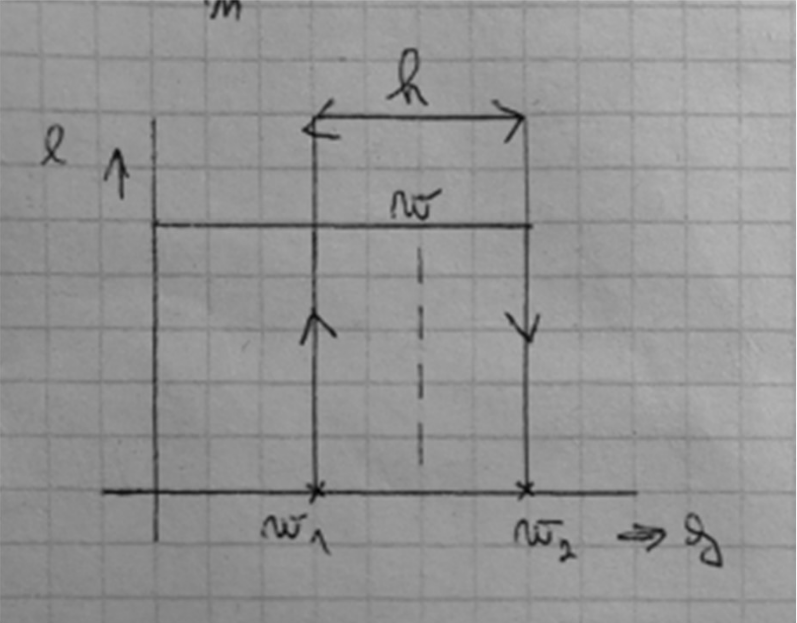 m
h
l ↑
w
w₁ w₂ ⇒ y